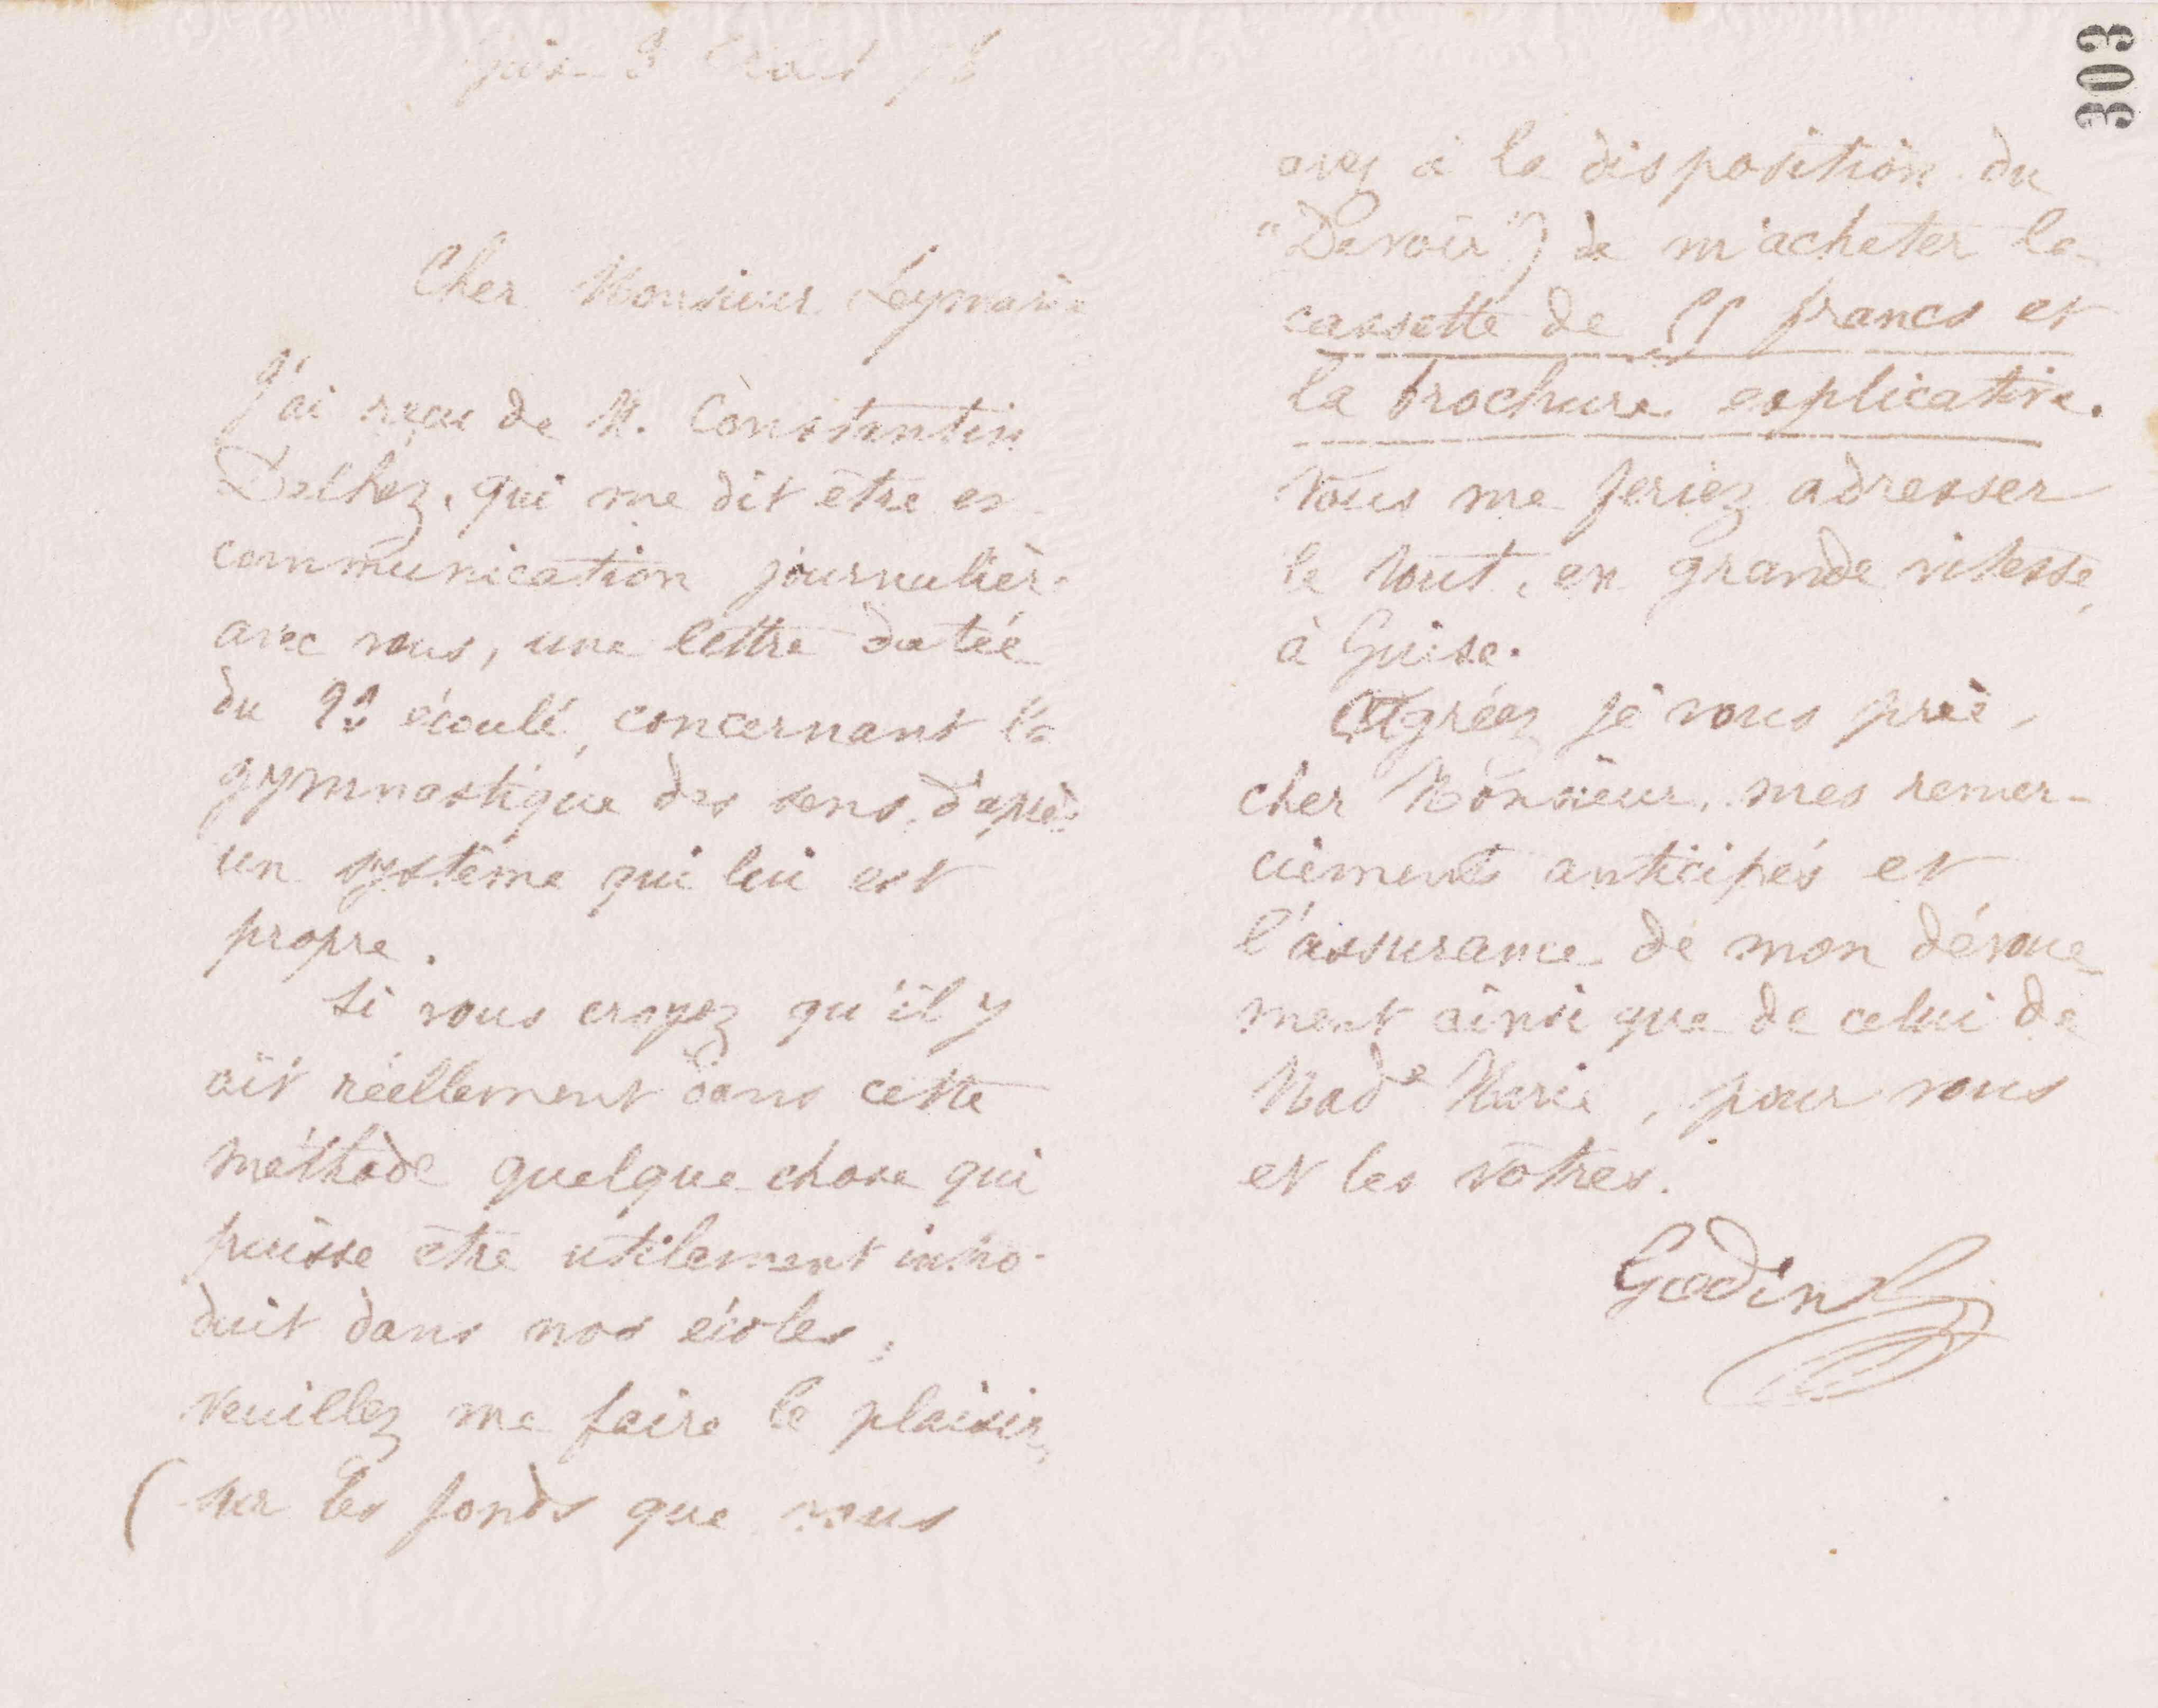 Guise 8 Mars 78
Cher Monsieur Leymarie
J'ai reçu de M. Constantin
Delhez, qui me dit être en
communication journalière
avec vous, une lettre datée
du écoulé, concernant la
gymnastique des sens, d'après
un système qui lui est
propre.
Si vous croyez qu'il y
ait réellement dans cette
méthode quelque chose qui
puisse être utilement intro-
duit dans nos écoles,
veuillez me faire le plaisir,
(sur les fonds que vous
303
avez à la disposition du
"Devoir") de m'acheter la
cassette de francs et
la brochure explicative.
Vous me feriez adresser
le tout, en grande vitesse,
à Guise.
Agréez je vous prie,
cher Monsieur, mes remer-
ciements anticipés et
l'assurance de mon dévoue-
ment ainsi que de celui de
Made Marie, pour vous
et les vôtres.
Godin